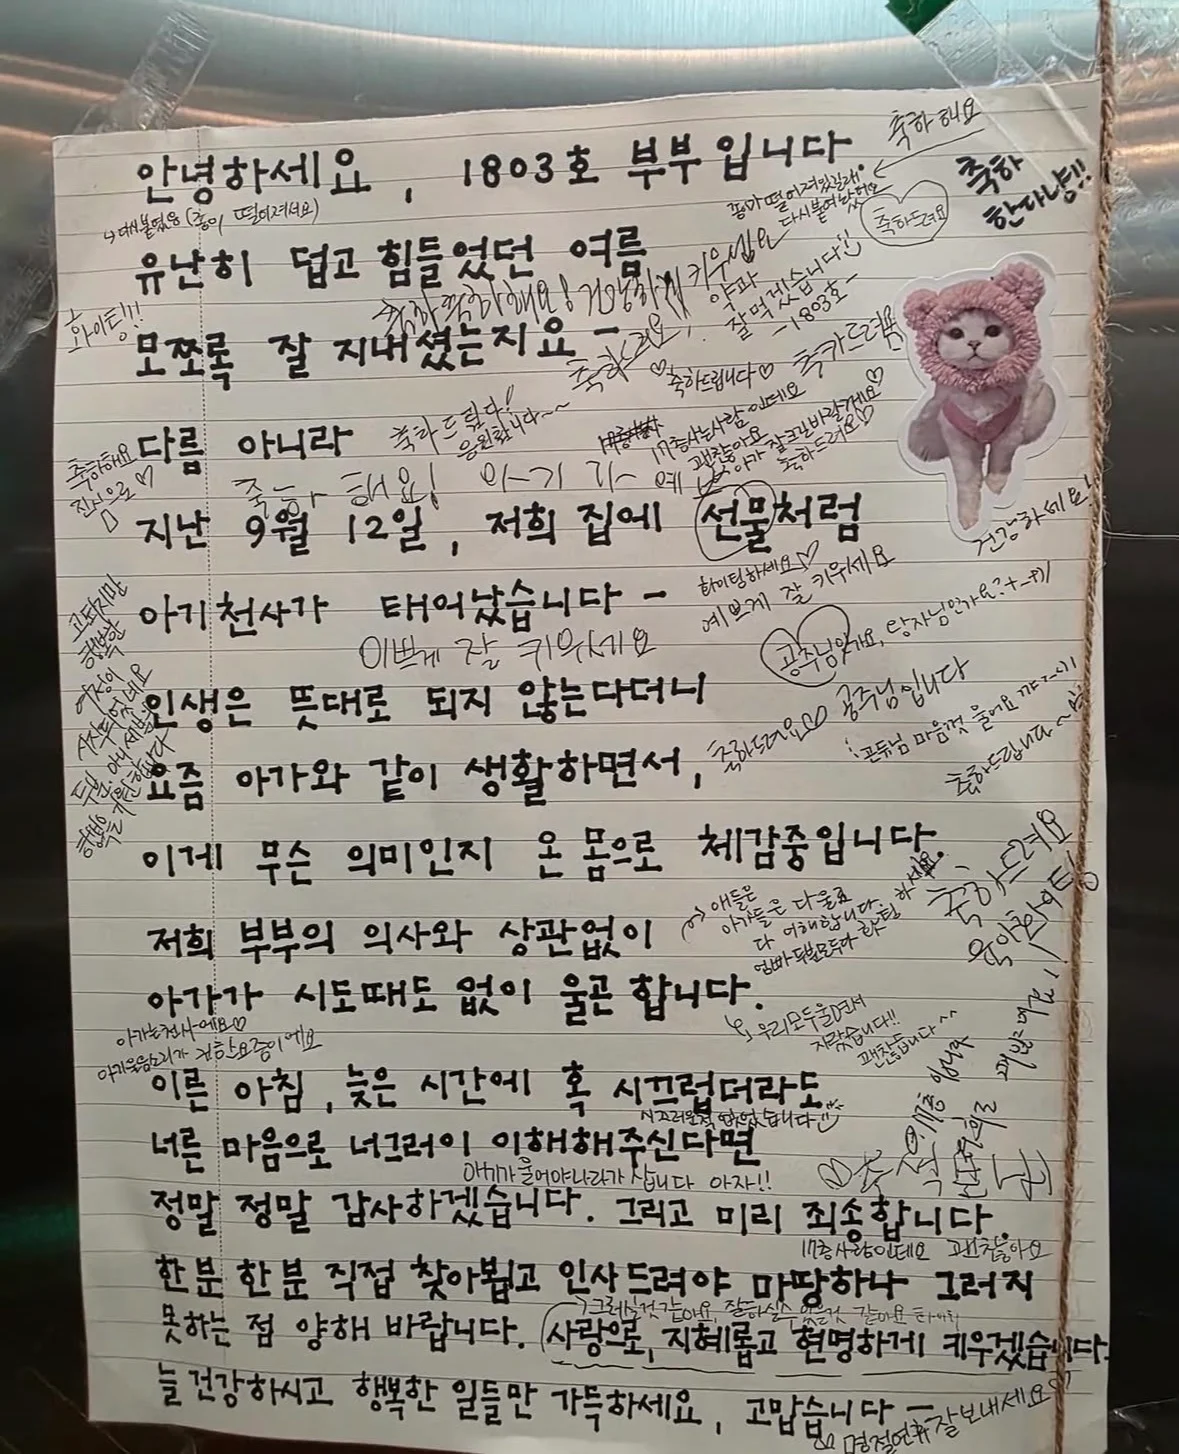 안녕하세요, 1803호 부부입니다.
축하해요
축하
한다냥!!
다시붙였음 (종이 떨어져서요)
풍마 떨어져있길래!
다시붙여놨어요
축하드려요
유난히 덥고 힘들었던 여름
축하 축하해요! 건강하게 키우십쇼
약과
잘 먹겠습니다
-1803호-
화이팅!!!
모쪼록 잘 지내셨는지요 -
축하드려요,
♡축하드립니다♡
축하드려요
다름 아니라
축하드립니다!
응원합니다~~
17층사는사람인데요
괜찮아요
아가 잘크길바랄게요♡
축하드려요♡
축하해요
진심으로♡
축하해요! 아~기 기~ 예
지난 9월 12일, 저희 집에 선물처럼
건강하세요!
아기천사가 태어났습니다 -
화이팅하세요♡
예쁘게 잘 키우세요
이쁘게 잘 키우세요
공주님인가요, 왕자님인가요?
고되지만
행복한
여정이
시작되었네요
두분 아니 세분의
행복을 기원합니다
인생은 뜻대로 되지 않는다더니
축하드려요♡ 공주님입니다
공듀님 마음껏 울어요
축하드립니다~
요즘 아가와 같이 생활하면서,
이게 무슨 의미인지 온 몸으로 체감중입니다.
축하드려요
저희 부부의 의사와 상관없이
애들은
아가들은 다 울죠
다 이해합니다.
엄빠 두분모두다 화이팅 하세요
아가가 시도때도 없이 울곤 합니다.
아가는천사에요♡
아기울음소리가 귀한요즘이에요
우리모두울면서
자랐습니다!!
괜찮습니다^^
이른 아침, 늦은 시간에 혹 시끄럽더라도
시끄러운적 없었습니다
너른 마음으로 너그러이 이해해주신다면
아기가 울어야 나라가 삽니다 아자!!
정말 정말 감사하겠습니다. 그리고 미리 죄송합니다.
17층사람인데요 괜찮아요
한분 한분 직접 찾아뵙고 인사드려야 마땅하나 그러지
그러실것 같아요, 잘하실수 있을것 같아요 화이팅
못하는 점 양해 바랍니다. 사랑으로, 지혜롭고 현명하게 키우겠습니다.
늘 건강하시고 행복한 일들만 가득하세요, 고맙습니다 -
명절연휴 잘보내세요